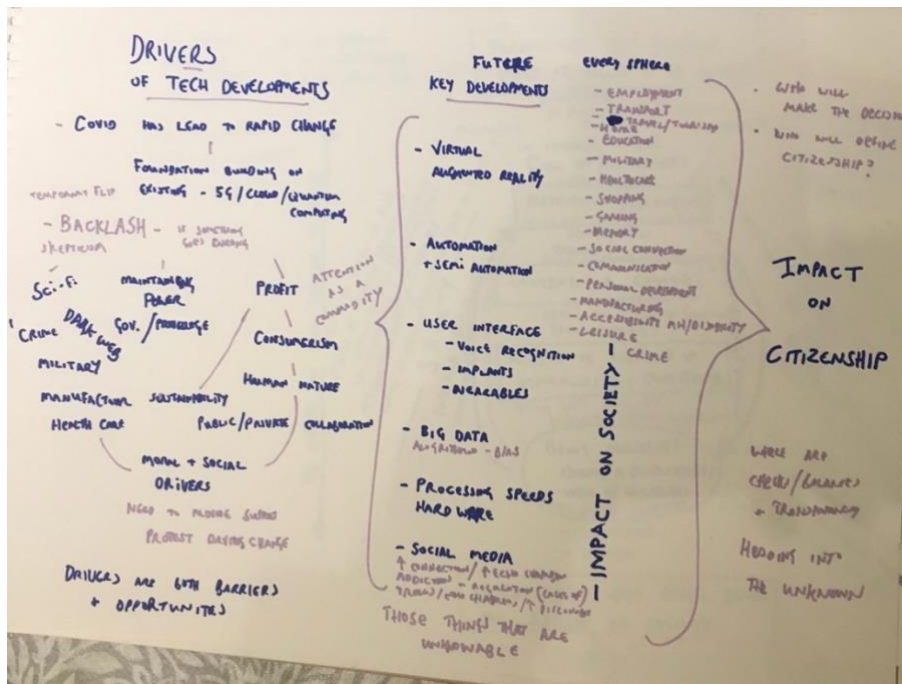 DRIVERS
OF TECH DEVELOPMENTS
- COVID HAS LEAD TO RAPID CHANGE
FOUNDATION BUILDING ON
EXISTING - 5G/CLOUD/QUANTUM
COMPUTING
TEMPORARY FLIP
- BACKLASH - IF SOMETHING
GOES WRONG
SKEPTICISM
SCI-FI
MAINTAINING
POWER
GOV. / PRIVILEGE
PROFIT
ATTENTION
AS A
COMMODITY
CRIME
DARK WEB
MILITARY
CONSUMERISM
HUMAN NATURE
MANUFACTUR SUSTAINABILITY
HEALTH CARE
PUBLIC/PRIVATE COLLABORATION
MORAL + SOCIAL
DRIVERS
NEED TO
PROTEST DRIVING CHANGE
DRIVERS ARE BOTH BARRIERS
+ OPPORTUNITES
FUTURE
KEY DEVELOPMENTS
- VIRTUAL
AUGMENTED REALITY
- AUTOMATION
+ SEMI AUTOMATION
- USER INTERFACE
- VOICE RECOGNITION
- IMPLANTS
- WEARABLES
- BIG DATA
ALGORITHMS - BIAS
- PROCESSING SPEEDS
HARDWARE
- SOCIAL MEDIA
↑ CONNECTION / ↑ ECHO CHAMBER
ADDICTION - REGULATION (LACK OF)
TROLLS / ECHO CHAMBERS /
THOSE THINGS THAT ARE
UNKNOWABLE
EVERY SPHERE
- EMPLOYMENT
- TRANSPORT
- TRAVEL/TOURISM
- HOME
- EDUCATION
- MILITARY
- HEALTHCARE
- SHOPPING
- GAMING
- MEMORY
- SOCIAL CONNECTION
- COMMUNICATION
- PERSONAL DEVELOPMENT
- MANUFACTURING
- ACCESSIBILITY MH/DISABILITY
- LEISURE
- CRIME
- IMPACT ON SOCIETY -
· WHO WILL
MAKE THE DECISION
· WHO WILL DEFINE
CITIZENSHIP?
IMPACT
ON
CITIZENSHIP
WHERE ARE
CHECKS/BALANCES
+ TRANSPARENCY
HEADING INTO
THE UNKNOWN